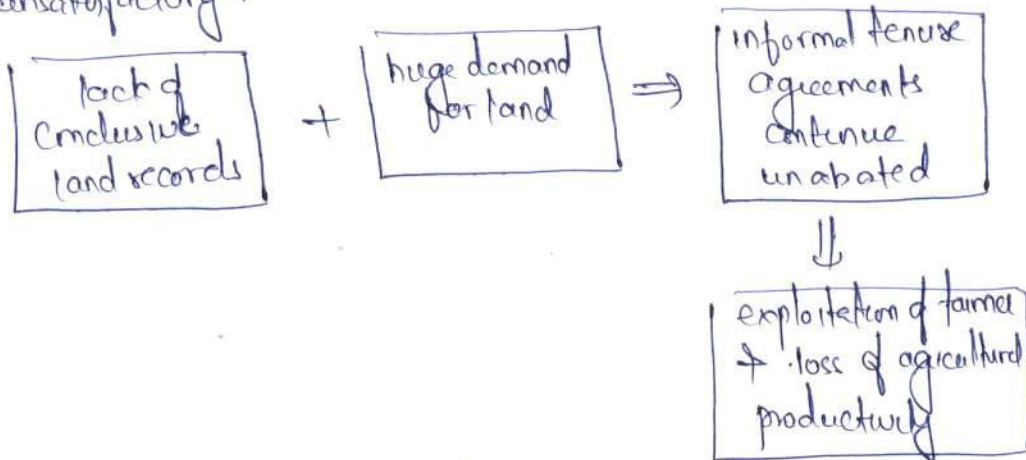 unsatisfactory
lack of
conclusive
land records
+
huge demand
for land
⇒
informal tenure
agreements
continue
unabated
⇓
exploitation of farmer
+ loss of agricultural
productivity